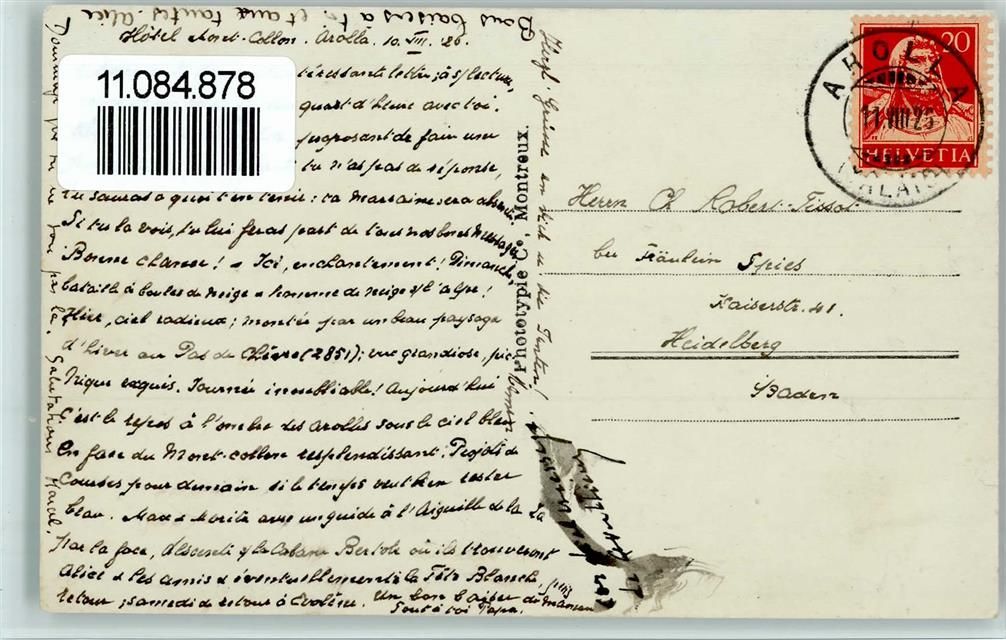 Bons baisers a toi et aux tantes. Alice
Hôtel Mont-Collon. Arolla. 10. VIII. '26.
11.084.878
intéressante lettre; à sa lecture,
quart d'heure avec toi.
proposant de faire une
tu n'as pas de réponse,
tu sauras à quoi t'en tenir: ta marraine sera absente.
Si tu la vois, tu lui feras part de tous nos bons messages
Bonne chance! = Ici, enchantement! Dimanche,
bataille à boules de neige & homme de neige à l'alpe!
Hier, ciel radieux; montée par un beau paysage
d'hiver au Pas de Chèvre (2851); vue grandiose, pic-
nique exquis. Journée inoubliable! Aujourd'hui
C'est le repos à l'ombre des arolles sous le ciel bleu
En face du Mont-Collon resplendissant. Projets de
Courses pour demain si le temps veut bien rester
beau. Max & Moritz avec un guide à l'Aiguille de la Za
par la face, descente s/la Cabane Bertol où ils trouveront
Alice & les amis & éventuellement à la Tête Blanche, puis
retour; samedi retour à Evolène. Un bon baiser de maman
Tout à toi Papa.
Salutations Marcel.
Herzl. Grüsse an dich u. die Tanten!
Phototypie Co., Montreux.
20
HELVETIA
AROLLA
11.VIII.26
(VALAIS)
Herrn Ch Robert-Tissot
bei Fräulein Spies
Kaiserstr. 41.
Heidelberg
Baden